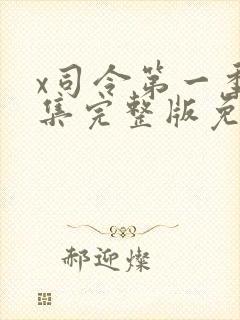 x司令第一季
集完整版免
郝迎燦